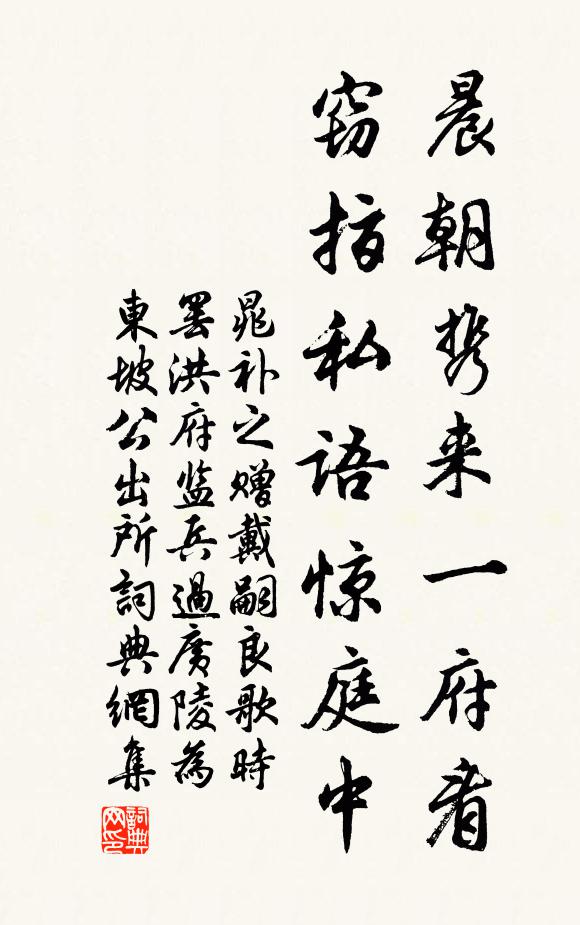 晨朝携来一府看
窃指私语惊庭中
晁补之赠戴嗣良歌时
罢洪府监兵過廣陵為
東坡公出所詞典網集
詞典网印